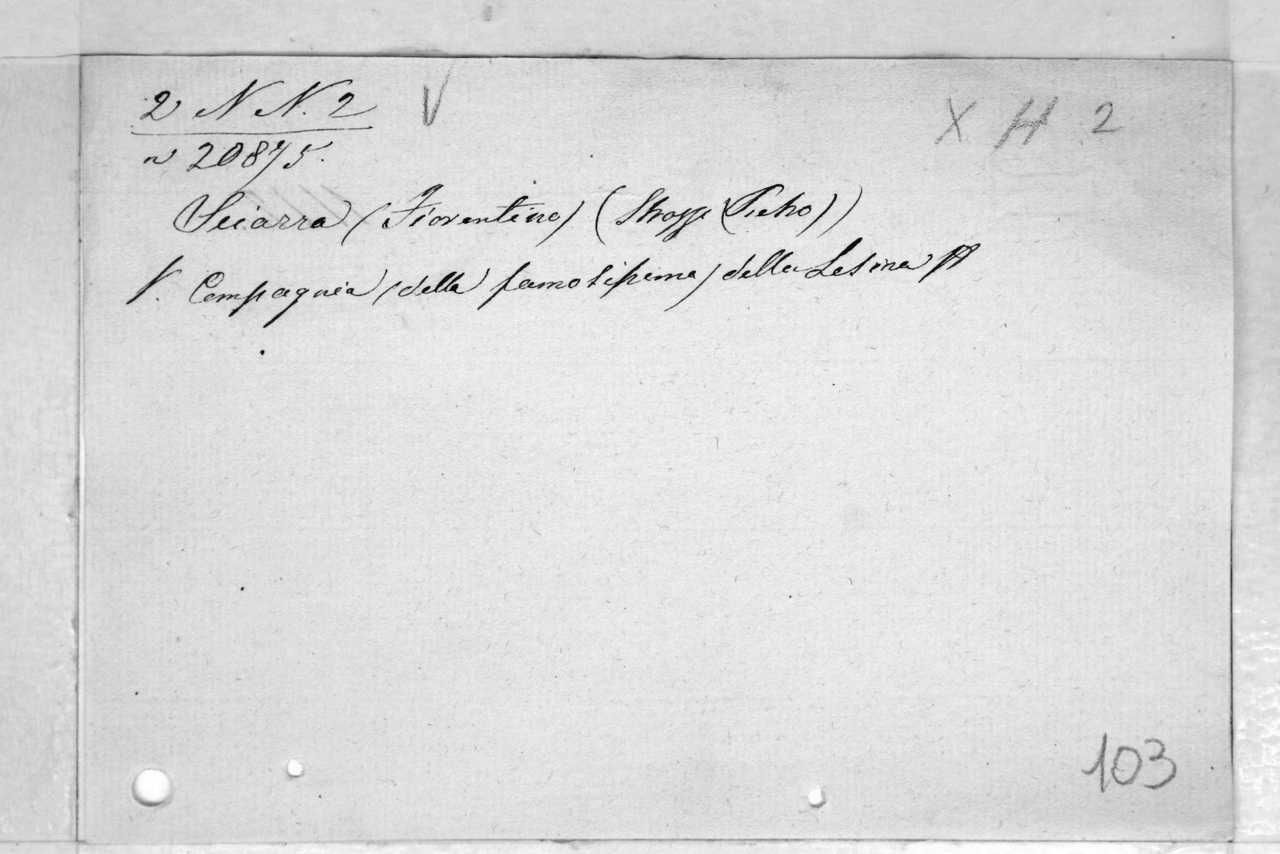 2 N N. 2 V X H 2
n 20875.
Sciarra (Fiorentino) (Strozzi (Pietro))
V. Compagnia (della famosissima) della Lesina
103